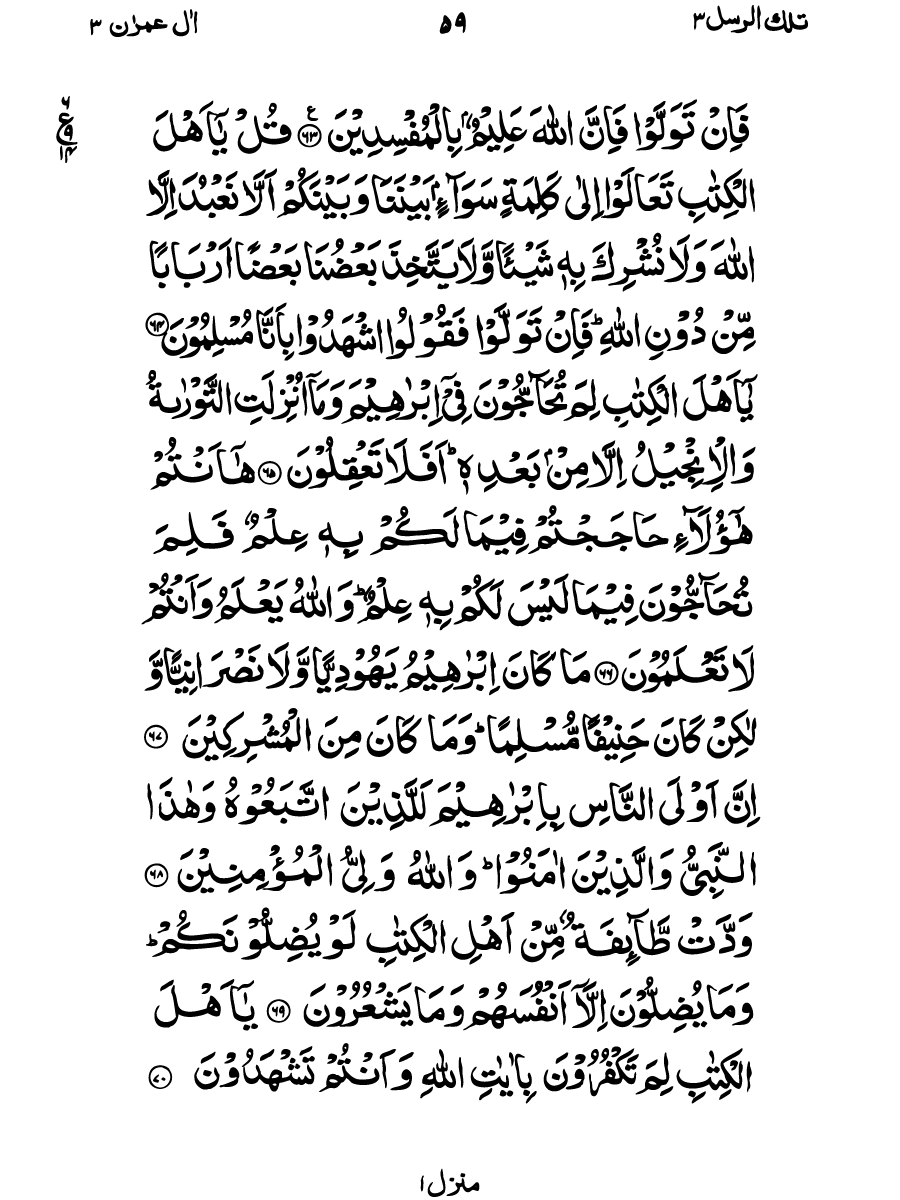 تلك الرسل ٣
٥٩
اٰل عمرٰن ٣
ع
٦
٩
١٤
فَاِنۡ تَوَلَّوۡا فَاِنَّ اللّٰهَ عَلِيۡمٌۢ بِالۡمُفۡسِدِيۡنَ ﴿٦٣﴾ ع قُلۡ يٰۤاَهۡلَ
الۡكِتٰبِ تَعَالَوۡا اِلٰى كَلِمَةٍ سَوَآءٍۢ بَيۡنَنَا وَبَيۡنَكُمۡ اَلَّا نَعۡبُدَ اِلَّا
اللّٰهَ وَلَا نُشۡرِكَ بِهٖ شَيۡئًا وَّلَا يَتَّخِذَ بَعۡضُنَا بَعۡضًا اَرۡبَابًا
مِّنۡ دُوۡنِ اللّٰهِؕ فَاِنۡ تَوَلَّوۡا فَقُوۡلُوا اشۡهَدُوۡا بِاَنَّا مُسۡلِمُوۡنَ ﴿٦٤﴾
يٰۤاَهۡلَ الۡكِتٰبِ لِمَ تُحَآجُّوۡنَ فِىۡۤ اِبۡرٰهِيۡمَ وَمَاۤ اُنۡزِلَتِ التَّوۡرٰٮةُ
وَالۡاِنۡجِيۡلُ اِلَّا مِنۡۢ بَعۡدِهٖؕ اَفَلَا تَعۡقِلُوۡنَ ﴿٦٥﴾ هٰۤاَنۡتُمۡ
هٰٓؤُلَآءِ حَاجَجۡتُمۡ فِيۡمَا لَكُمۡ بِهٖ عِلۡمٌ فَلِمَ
تُحَآجُّوۡنَ فِيۡمَا لَيۡسَ لَكُمۡ بِهٖ عِلۡمٌؕ وَاللّٰهُ يَعۡلَمُ وَاَنۡتُمۡ
لَا تَعۡلَمُوۡنَ ﴿٦٦﴾ مَا كَانَ اِبۡرٰهِيۡمُ يَهُوۡدِيًّا وَّلَا نَصۡرَانِيًّا وَّ
لٰكِنۡ كَانَ حَنِيۡفًا مُّسۡلِمًاؕ وَمَا كَانَ مِنَ الۡمُشۡرِكِيۡنَ ﴿٦٧﴾
اِنَّ اَوۡلَى النَّاسِ بِاِبۡرٰهِيۡمَ لَلَّذِيۡنَ اتَّبَعُوۡهُ وَهٰذَا
النَّبِىُّ وَالَّذِيۡنَ اٰمَنُوۡاؕ وَاللّٰهُ وَلِىُّ الۡمُؤۡمِنِيۡنَ ﴿٦٨﴾
وَدَّتۡ طَّآٮِٕفَةٌ مِّنۡ اَهۡلِ الۡكِتٰبِ لَوۡ يُضِلُّوۡنَكُمۡؕ
وَمَا يُضِلُّوۡنَ اِلَّاۤ اَنۡفُسَهُمۡ وَمَا يَشۡعُرُوۡنَ ﴿٦٩﴾ يٰۤاَهۡلَ
الۡكِتٰبِ لِمَ تَكۡفُرُوۡنَ بِاٰيٰتِ اللّٰهِ وَاَنۡتُمۡ تَشۡهَدُوۡنَ ﴿٧٠﴾
منزل ١